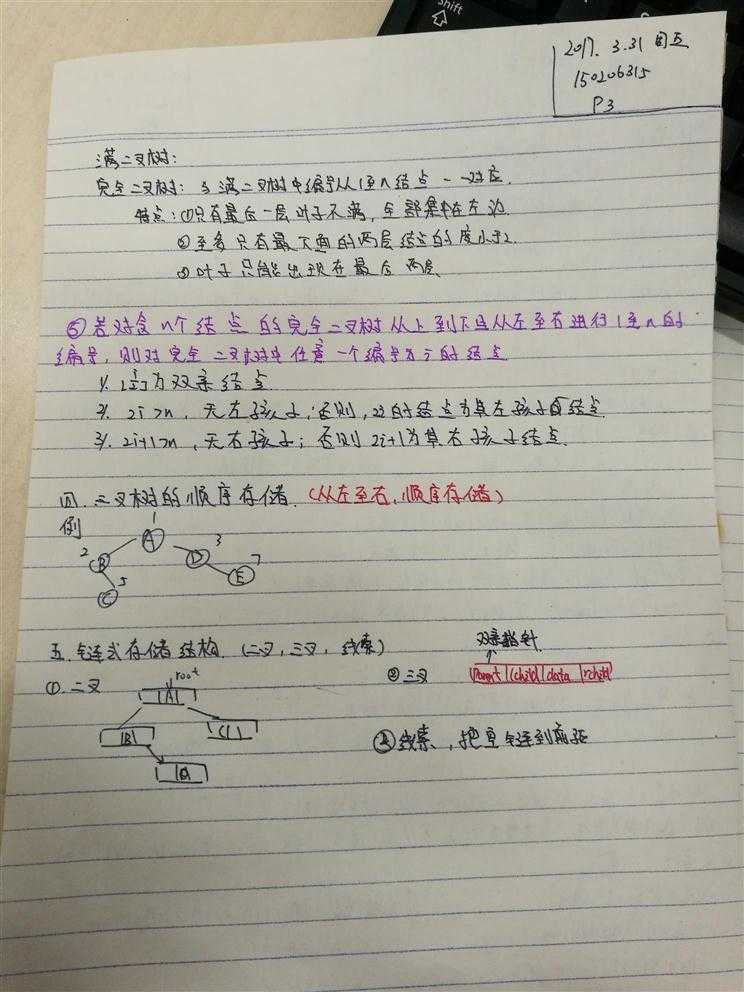 Shift
2017. 3.31 周五
150206315
P3
满二叉树:
完全二叉树: 与满二叉树中编号从1至n结点一一对应.
特点: ①只有最后一层叶子不满, 全部集中在左边
②至多只有最下面的两层结点的度小于2.
③叶子只能出现在最后两层.
⑤若对含n个结点的完全二叉树从上到下且从左至右进行1至n的
编号, 则对完全二叉树中任意一个编号为i的结点
1. 为双亲结点
2. 2i>n, 无左孩子; 否则, 2i的结点为其左孩子结点.
3. 2i+1>n, 无右孩子; 否则 2i+1为其右孩子结点.
四. 二叉树的顺序存储. (从左至右, 顺序存储)
例
1
A
2
B
3
D
5
C
7
E
五. 链式存储结构 (二叉, 三叉, 线索)
双亲指针
① 二叉
root
② 三叉
parent lchild data rchild
A
B
C
D
③ 线索, 把空链到前驱